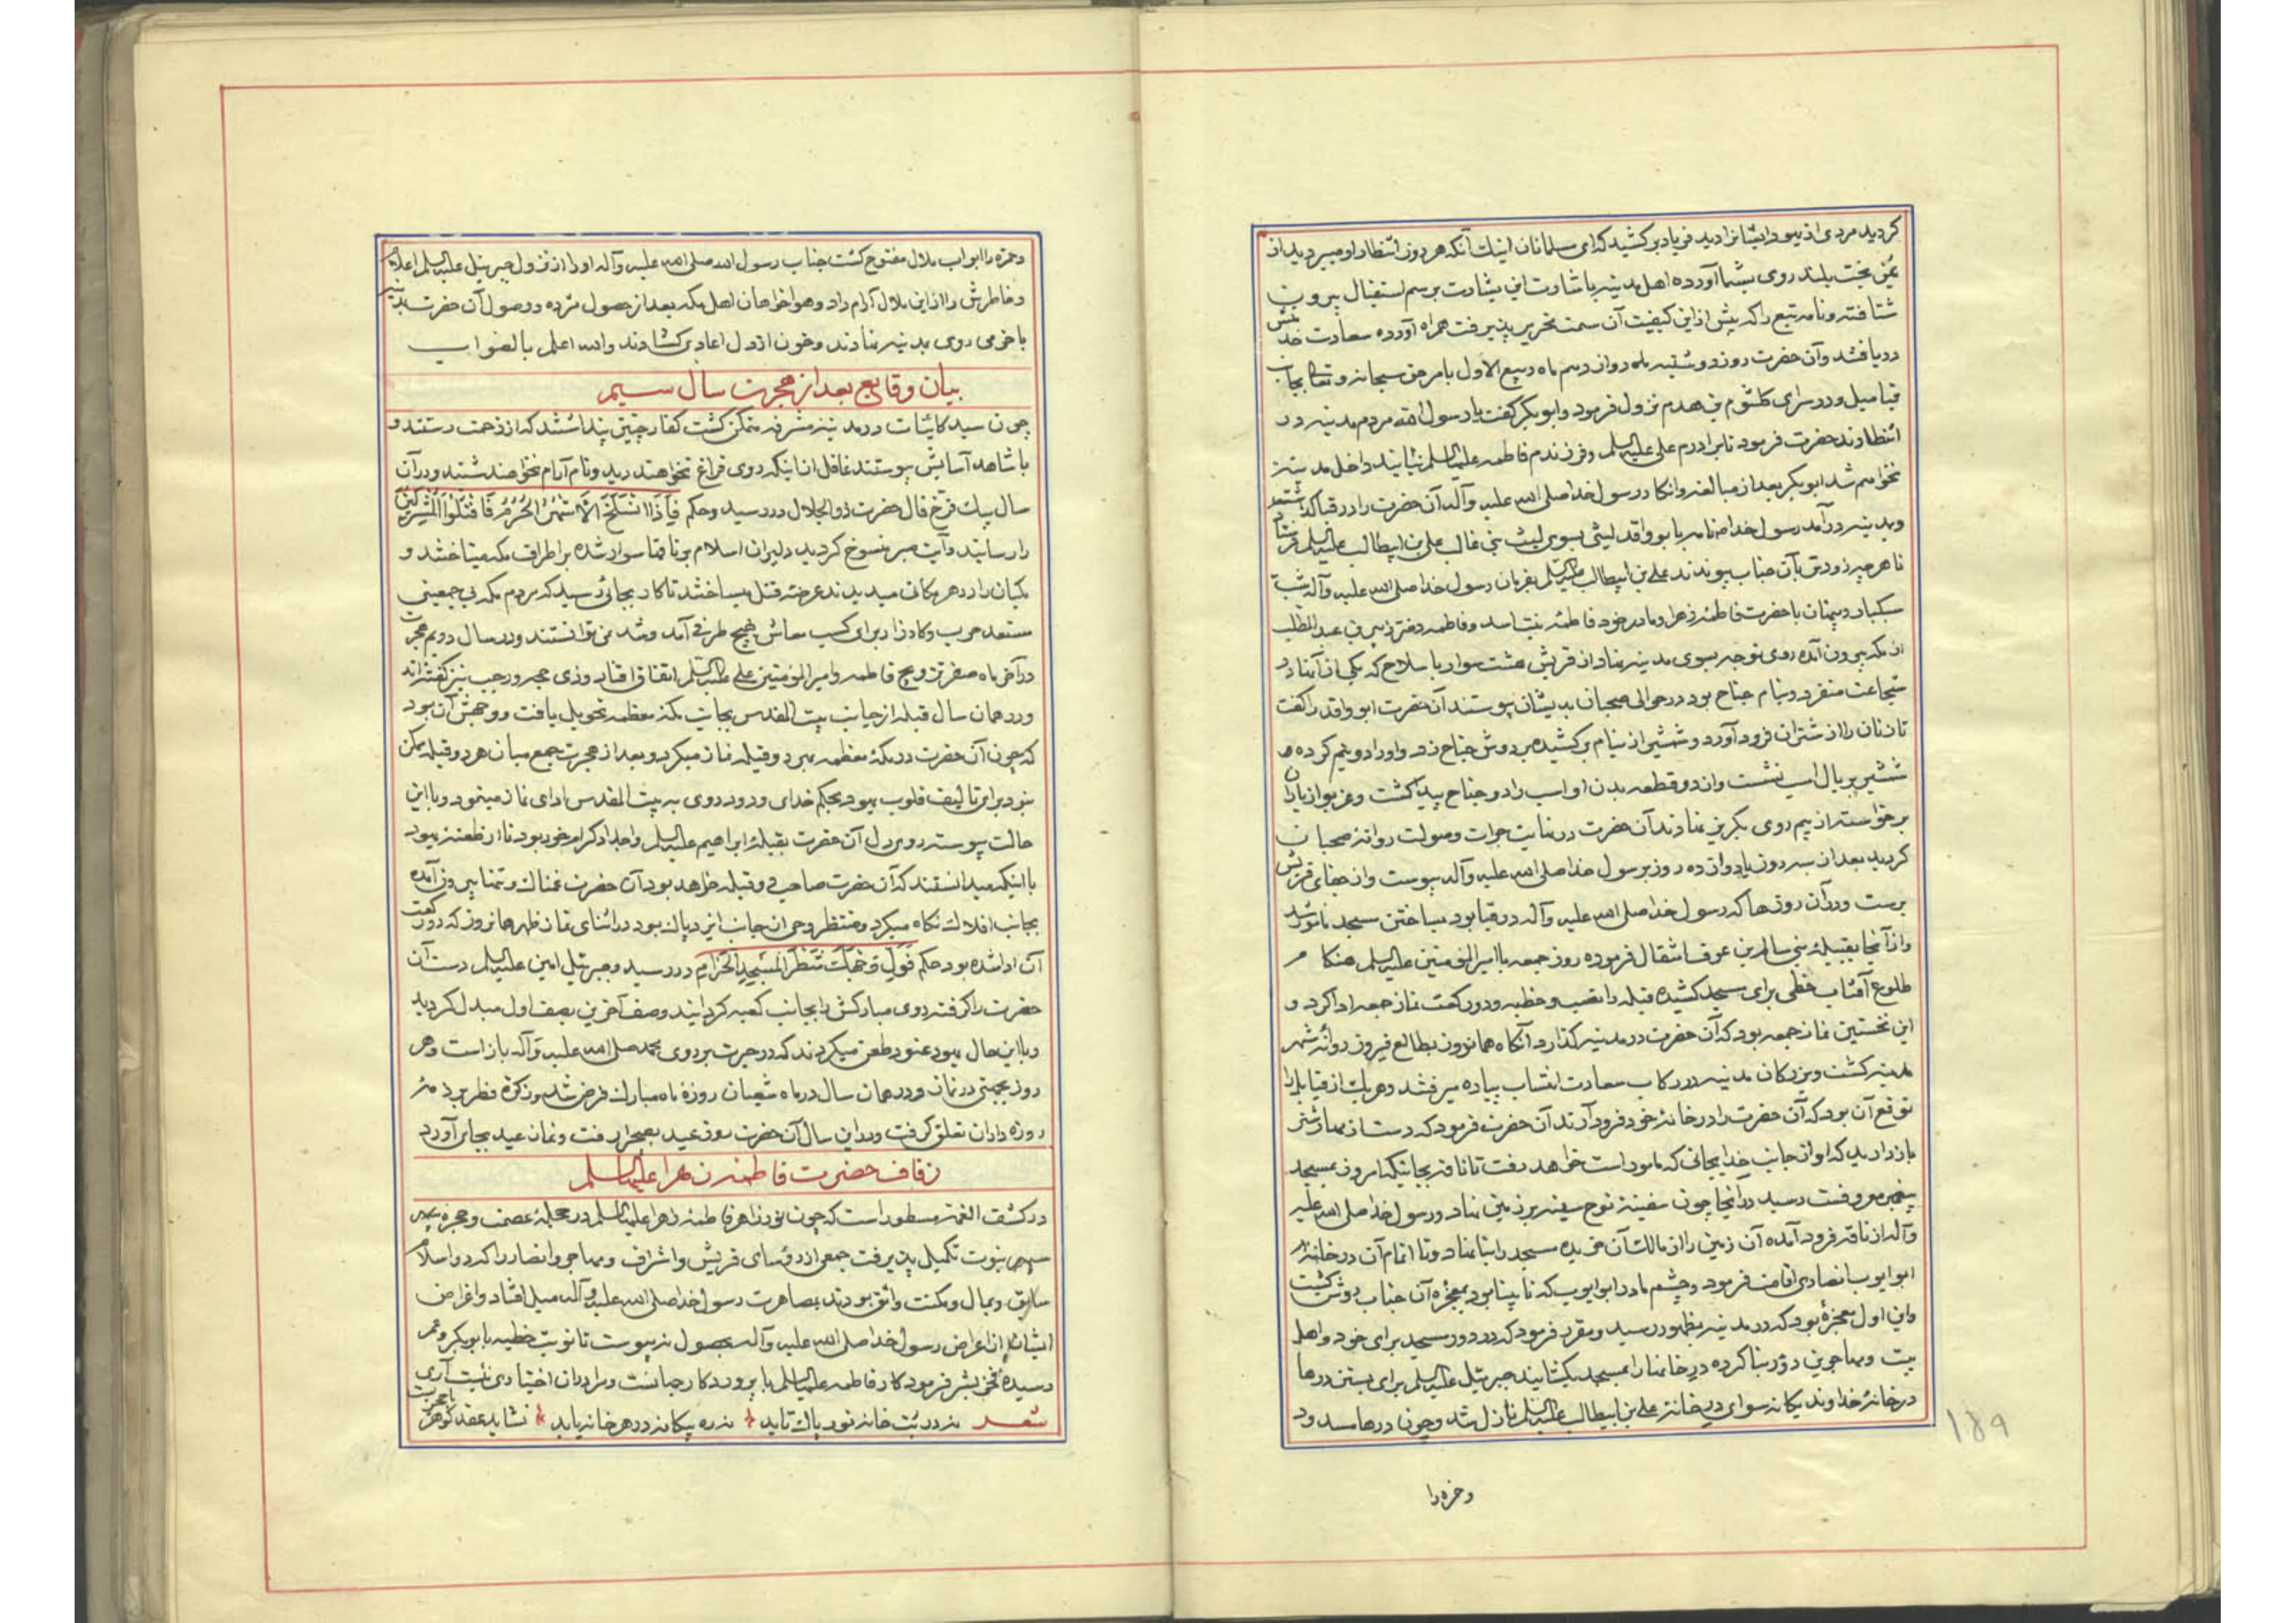 کردید مردی از یهود ایشانرا دید فریاد برکشید که ای مسلمانان اینك آنکه هر روز انتظار او میبردید از
یمن بخت بلند روی بشما آورده اهل مدینه باشارت این بشارت برسم استقبال بیرون
شتافته و نامه تبع را که پیش از این کیفیت آن سمت تحریر پذیرفت همراه آورده سعادت خدمتش
دریافتند و آن حضرت روز دوشنبه دوازدهم ماه ربیع الاول بامر حق سبحانه و تعالی بجانب
قبا میل و در سرای کلثوم بن هدم نزول فرمود و ابوبکر کفت یا رسول الله مردم مدینه در
انتظارند حضرت فرمود تا برادرم علی علیه السلم و فرزندم فاطمه علیها السلم نیایند داخل مدینه
نخواهم شد ابوبکر بعد از مبالغه و انکار رسول خدا صلی الله علیه وآله آن حضرت را در قبا کذاشته
و بمدینه درآمد رسول خدا نامه با بو واقد لیثی بسوی لیث بنی غالب علی بن ابیطالب علیه السلم فرستاد
تا هرچه زودتر بآن جناب پیوندند علی بن ابیطالب علیه السلم بفرمان رسول خدا صلی الله علیه وآله شب
سبکبار و پنهان با حضرت فاطمه زهرا و مادر خود فاطمه بنت اسد و فاطمه دختر زبیر بن عبد المطلب
از مکه بیرون آمده روی توجه بسوی مدینه نهاد از قریش هشت سوار با سلاح که یکی از آنها در
شجاعت منفرد و بنام جناح بود در حوالی ضجنان بدیشان پیوستند آن حضرت ابو واقد را کفت
تا زنان را از شتران فرود آورد و شمشیر از نیام برکشیده بر دوش جناح زد و او را دو نیم کرده و
شمشیر بر یال اسب نشست و از دو قطعه بدن او اسب را دو جناح پیدا کشت و غریو از یاران
برخواسته از بیم روی بکریز نهادند آن حضرت در نهایت جرات و صولت روانه ضجنان
کردید بعد از سه روز یا دوازده روز برسول خدا صلی الله علیه وآله پیوست و از جفای قریش
برست و در آن روزها که رسول خدا صلی الله علیه وآله در قبا بود بساختن مسجد مامور شد
و از آنجا بقبیله بنی سالم بن عوف انتقال فرموده روز جمعه با امیر المؤمنین علیه السلم هنکام
طلوع آفتاب خطی برای مسجد کشیده قبله را نصب و خطبه و دو رکعت نماز جمعه ادا کرد و
این نخستین نماز جمعه بود که آن حضرت در مدینه کذارد آنکاه همایون بطالع فیروز روانه شهر
مدینه کشت و بزرکان مدینه در رکاب سعادت انتساب پیاده میرفتند و هر یك از قبایل را
توقع آن بود که آن حضرت را در خانه خود فرود آرند آن حضرت فرمود که دست از مهار شتر
بازدارید که او از جانب خدا بجائی که مامور است خواهد رفت تا ناقه بجائیکه امروز بمسجد
پیغمبر معروفست رسید در آنجا چون سفینه نوح سینه بر زمین نهاد و رسول خدا صلی الله علیه
وآله از ناقه فرود آمده آن زمین را از مالك آن خریده مسجد را بنا نهاد و تا اتمام آن در خانه
ابو ایوب انصاری اقامت فرمود و چشم مادر ابو ایوب که نابینا بود بمعجزه آن جناب روشن کشت
و این اول معجزه بود که در مدینه بظهور رسید و مقرر فرمود که در دور مسجد برای خود و اهل
بیت و مهاجرین دور بنا کرده در خانها را بمسجد بکشایند جبرئیل علیه السلم برای بستن درها
در خانه خداوند یکانه سوای در خانه علی بن ابیطالب علیه السلم نازل شد و چون درها مسدود
۱۸۹
و حمزه را
و حمزه را ابواب ملال مفتوح کشت جناب رسول الله صلی الله علیه وآله او را از نزول جبرئیل علیه السلم اعلام
و خاطرش را از این ملال آرام داد و هواخواهان اهل مکه بعد از حصول مژده وصول آن حضرت بمدینه
با خرمی روی بمدینه نهادند و خون از دل اعادی کشادند والله اعلم بالصواب
بیان وقایع بعد از هجرت سال سیم
چون سید کاینات در مدینه مشرفه متمکن کشت کفار چنین پنداشتند که از زحمت رستند و
با شاهد آسایش پیوستند غافل از اینکه روی فراغ نخواهند دید و نام آرام نخواهند شنید و در آن
سال پیك فرخ فال حضرت ذو الجلال در رسید و حکم فَاِذَا انْسَلَخَ الْاَشْهُرُ الْحُرُمُ فَاقْتُلُوا الْمُشْرِکِینَ
را رسانید و آیت صبر منسوخ کردید دلیران اسلام بر ناقها سوار شده بر اطراف مکه میتاختند و
مکیان را در هر مکانی میدیدند عرضه قتل میساختند تا کار بجائی رسید که مردم مکه بی جمعیتی
مستعد حرب و کارزار برای کسب معاش هیچ طرفی آمد و شد نمی توانستند و در سال دویم هجرت
در آخر ماه صفر تزویج فاطمه و امیر المؤمنین علی علیه السلم اتفاق افتاد و ذی حجه و رجب نیز کفته اند
و در همان سال قبله از جانب بیت المقدس بجانب مکه معظمه تحویل یافت و وجهش آن بود
که چون آن حضرت در مکه معظمه بهر دو قبله نماز میکرد و بعد از هجرت جمع میان هر دو قبله ممکن
نبود برای تالیف قلوب یهود بحکم خدای ودود روی به بیت المقدس ادای نماز مینمود و با این
حالت پیوسته روی دل آن حضرت بقبله ابراهیم علیه السلم و اجداد کرام خود بود تا از طعنه یهود
با اینکه میدانستند که آن حضرت صاحب دو قبله خواهد بود آن حضرت غمناك و تنها بیرون آمده
بجانب افلاك نکاه میکرد و منتظر وحی از جانب ایزد پاك بود در اثنای نماز ظهر همانروز که دو رکعت
آن ادا شده بود حکم فَوَلِّ وَجْهَكَ شَطْرَ الْمَسْجِدِ الْحَرَامِ در رسید و جبرئیل امین علیه السلم دست آن
حضرت را کرفته روی مبارکش را بجانب کعبه کردانید و صف آخرین بصف اول مبدل کردید
و با این حال یهود عنود طعن میکردند که در حیرت بر روی محمد صلی الله علیه وآله باز است و هر
روز بجهتی در نماز و در همان سال در ماه شعبان روزه ماه مبارك فرض شد و زکوة فطر بر ذمه
روزه داران تعلق کرفت و در این سال آن حضرت روز عید بصحرا رفت و نماز عید بجای آورد
زفاف حضرت فاطمه زهرا علیها السلم
در کشف الغمه مسطور است که چون نور زاهر فاطمه زهرا علیها السلم در حجله عصمت و حجره
سپهر نبوت تکمیل پذیرفت جمعی از رؤسای قریش و اشراف و مهاجر و انصار را که در اسلام
سابق و بمال و مکنت واثق بودند بمصاهرت رسول خدا صلی الله علیه وآله میل افتاد و اغراض
ایشانرا از اعراض رسول خدا صلی الله علیه وآله بحصول نه پیوست تا نوبت خطبه بابوبکر و عمر
رسیده فخر بشر فرمود کار فاطمه علیها السلم با پروردکار جهانست و مرا در آن اختیاری نیست آری
شعر نه در بت خانه نور پاك تابد نه ره بیکانه در هر خانه یابد نشاید عقد کوهر